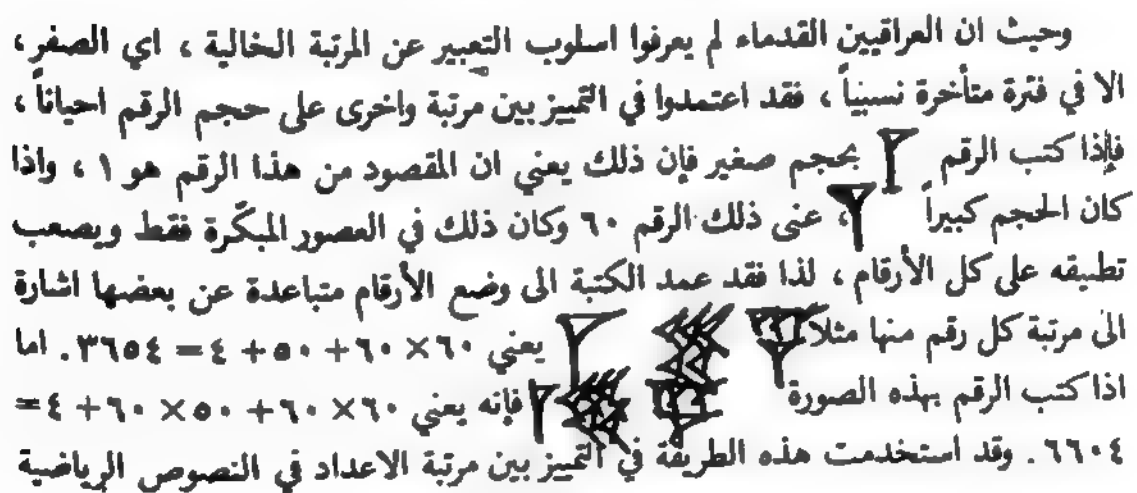 وحيث ان العراقيين القدماء لم يعرفوا اسلوب التعبير عن المرتبة الخالية ، اي الصفر ،
الا في فترة متأخرة نسبياً ، فقد اعتمدوا في التمييز بين مرتبة واخرى على حجم الرقم احياناً ،
فإذا كتب الرقم 𒁹 بحجم صغير فإن ذلك يعني ان المقصود من هذا الرقم هو ١ ، واذا
كان الحجم كبيراً 𒁹 ، عنى ذلك الرقم ٦٠ وكان ذلك في العصور المبكّرة فقط ويصعب
تطبيقه على كل الأرقام ، لذا فقد عمد الكتبة الى وضع الأرقام متباعدة عن بعضها اشارة
الى مرتبة كل رقم منها مثلا يعني ٦٠ × ٦٠ + ٥٠ + ٤ = ٣٦٥٤ . اما
اذا كتب الرقم بهذه الصورة فإنه يعني ٦٠ × ٦٠ + ٥٠ × ٦٠ + ٤ =
٦٦٠٤ . وقد استخدمت هذه الطريقة في التمييز بين مرتبة الاعداد في النصوص الرياضية